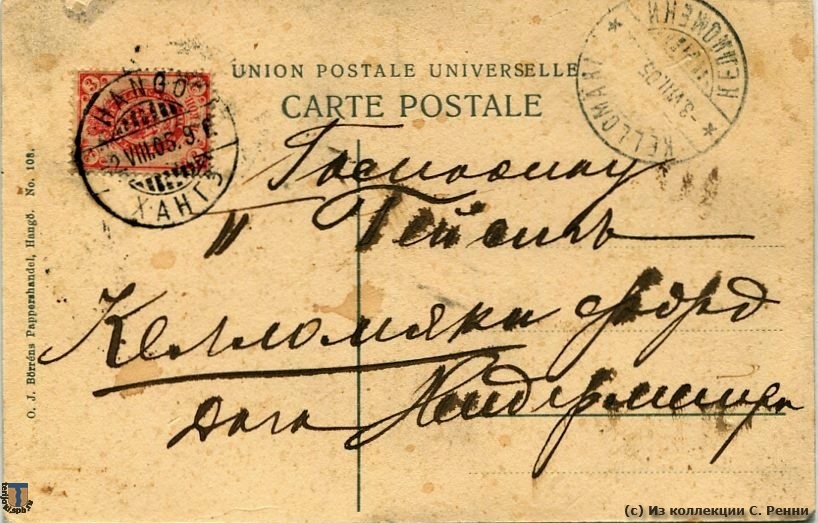 UNION POSTALE UNIVERSELLE
CARTE POSTALE
HANGÖ
2.VIII.05.9
ХАНГЭ
KELLOMÄKI
-3.VIII.05
КЕЛЛОМЯКИ
Господину
Гейсиъ
Келломяки
Дача
O. J. Börréns Pappershandel, Hangö. No. 108.
terijoki.spb.ru
(c) Из коллекции С. Ренни